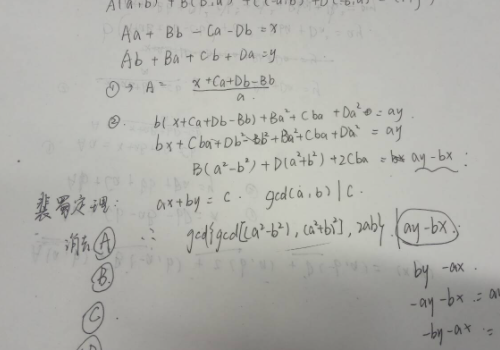 A(a,b) + B(b,a) + C(-a,b) + D(-b,a)
Aa + Bb - Ca - Db = x
Ab + Ba + Cb + Da = y
① → A = x+Ca+Db-Bb / a
②. b(x+Ca+Db-Bb) + Ba² + Cba + Da² = ay
bx + Cba + Db² - Bb² + Ba² + Cba + Da² = ay
B(a²-b²) + D(a²+b²) + 2Cba = ay-bx :
裴蜀定理: ax+by = c. gcd(a,b) | c.
消去 Ⓐ ∴ gcd{gcd[(a²-b²), (a²+b²)], 2ab} | ay-bx
Ⓑ by -ax.
Ⓒ -ay-bx =
-by-ax =